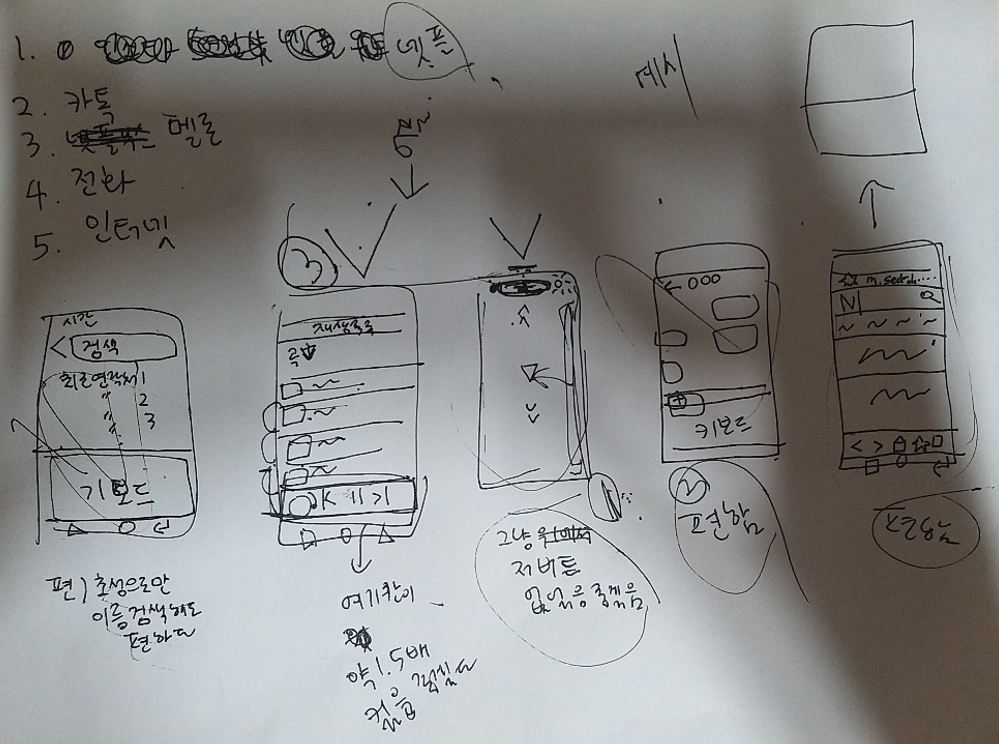 1. 넷플
2. 카톡
3. 멜론
4. 전화
5. 인터넷
예시
3
시간
검색
최근연락처 1
〃 2
〃 3
키보드
편) 초성으로만
이름검색해도
편하다
재생목록
곡
여기칸이
약 1.5배
컸음 좋겠다
그냥
저버튼
없었음 좋겠음
← 000
키보드
2
편함
m.search....
N
편함